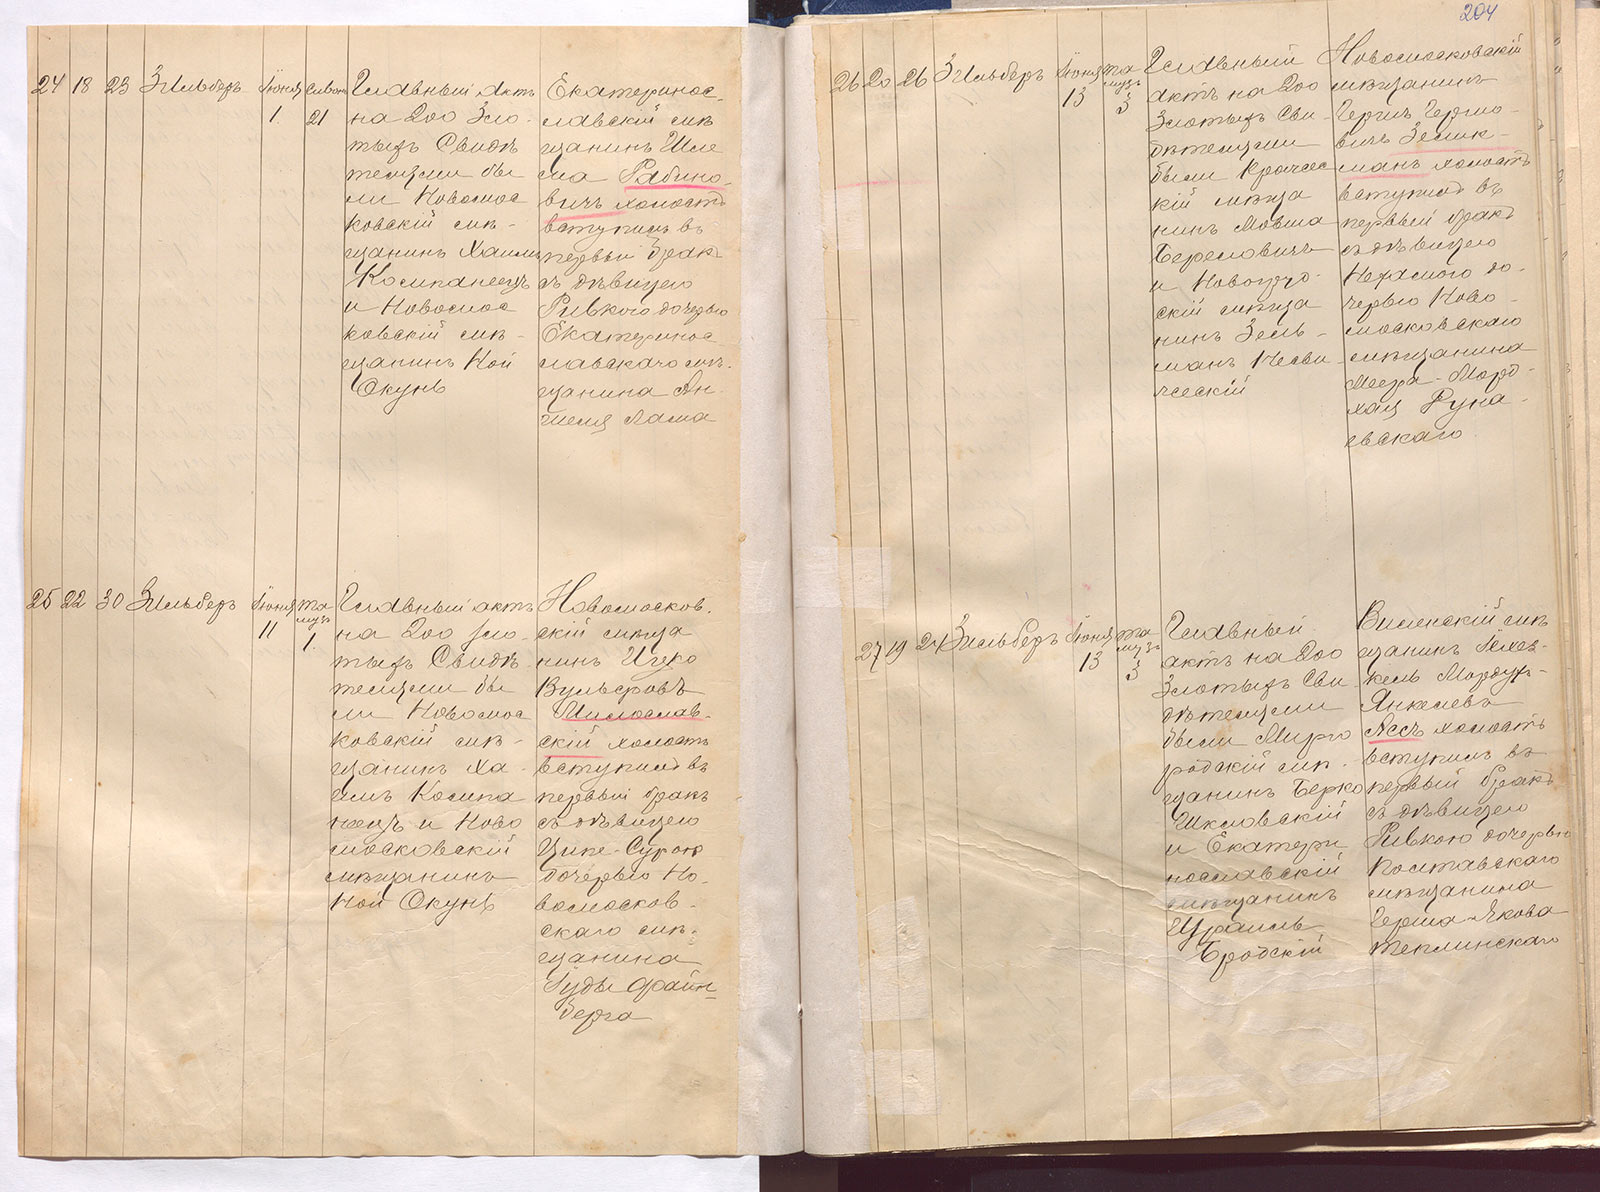 204
24 18 23 Зильберъ Іюня 1 Сивонъ 21
Главный актъ
на 200 зло-
тыхъ Свидѣ
телями бы
ли Новомос
ковскій мѣ-
щанинъ Хаимъ
Компанеецъ
и Новомос
ковскій мѣ-
щанинъ Ной
Окунь
Екатеринос-
лавскій мѣ
щанинъ Шле
ма Рабино-
вичъ холостъ
вступилъ въ
первый бракъ
съ дѣвицею
Ривкою дочерью
Екатеринос
лавскаго мѣ-
щанина Ан-
25 22 30 Зильберъ Іюня 11 Тамузъ 1
Главный актъ
на 200 зло-
тыхъ Свидѣ
телями бы
ли Новомос
ковскій мѣ-
щанинъ Ха-
имъ Компа
неецъ и Ново
московскій
мѣщанинъ
Ной Окунь
Новомосков-
скій мѣща
нинъ Ицко
Вульфовъ
Милослав-
скій холостъ
вступилъ въ
первый бракъ
съ дѣвицею
Ципе-Сурою
дочерью Но-
вомосков-
скаго мѣ-
щанина
Іуды Файн-
берга
26 20 26 Зильберъ Іюня 13 Тамузъ 3
Главный
актъ на 200
Злотыхъ Сви
дѣтелями
были
кій мѣща
нинъ Мовша
Береловичъ
и
скій мѣща
нинъ Зель-
манъ Несви
жескій
Новомосковскій
мѣщанинъ
Герцъ Гершо-
вичъ Зелик-
манъ холостъ
вступилъ въ
первый бракъ
съ дѣвицею
Нехамою до-
черью Ново-
московскаго
мѣщанина
Меера-Морд-
хая Руна-
евскаго
27 19 24 Зильберъ Іюня 13 Тамузъ 3
Главный
актъ на 200
Злотыхъ Сви
дѣтелями
были Мирго
родскій мѣ-
щанинъ Берко
Шкловскій
и Екатери
нославскій
мѣщанинъ
Израиль
Бродскій
Виленскій мѣ
щанинъ Іехез-
кель Мордух-
Янкелевъ
Лесъ холостъ
вступилъ въ
первый бракъ
съ дѣвицею
Ривкою дочерью
Полтавскаго
мѣщанина
Герша-Якова
Теплинскаго